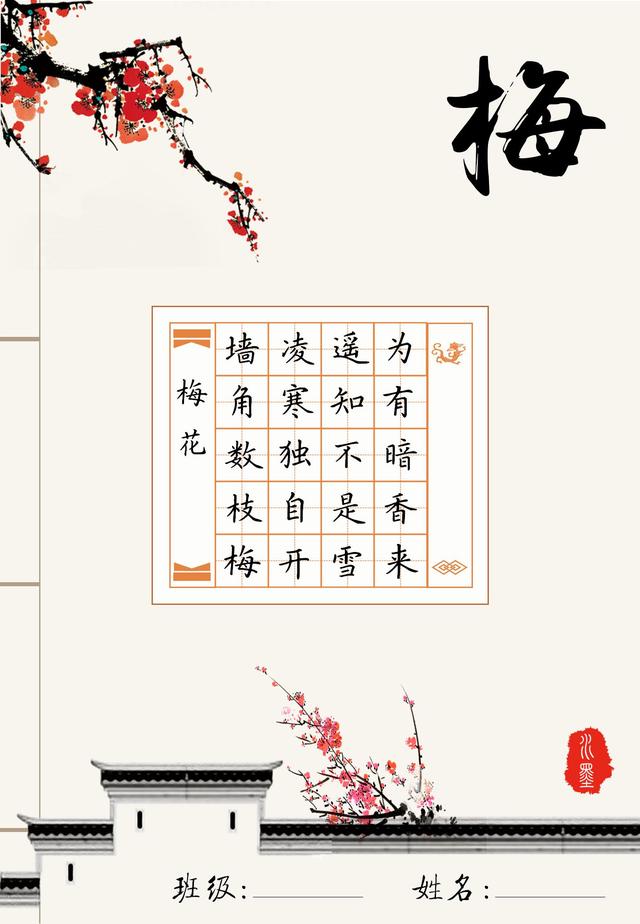 梅
梅花
墙角数枝梅
凌寒独自开
遥知不是雪
为有暗香来
水墨
班级:
姓名: